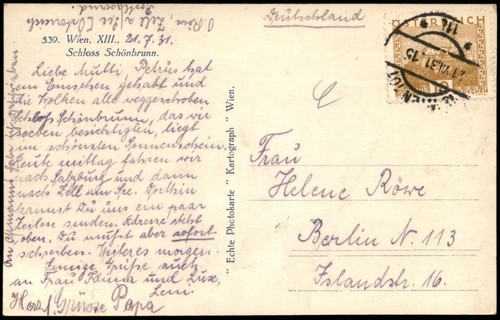 O. Röwe, Zell a. See (Österreich
Postlagernd.
539. Wien, XIII., 21.7.31.
Schloss Schönbrunn.
Liebe Mutti Petrus hat
ein Einsehen gehabt und
die Wolken alle weggeschoben
Schloß Schönbrunn, das wir
soeben besichtigten, liegt
im schönsten Sonnenschein.
Heute mittag fahren wir
nach Salzburg und dann
nach Zell am See. Dorthin
kannst Du uns ein paar
Zeilen senden. Adresse steht
oben. Du mußt aber sofort
schreiben. Weiteres morgen.
Innige Grüße auch
an Frau und Lux,
Leni.
Herzl. Grüsse Papa
"Echte Photokarte" Kartograph" Wien.
Deutschland
ÖSTERREICH
WIEN 101
21.VII.31. 15
Frau
Helene Röwe
Berlin N. 113
Islandstr. 16.